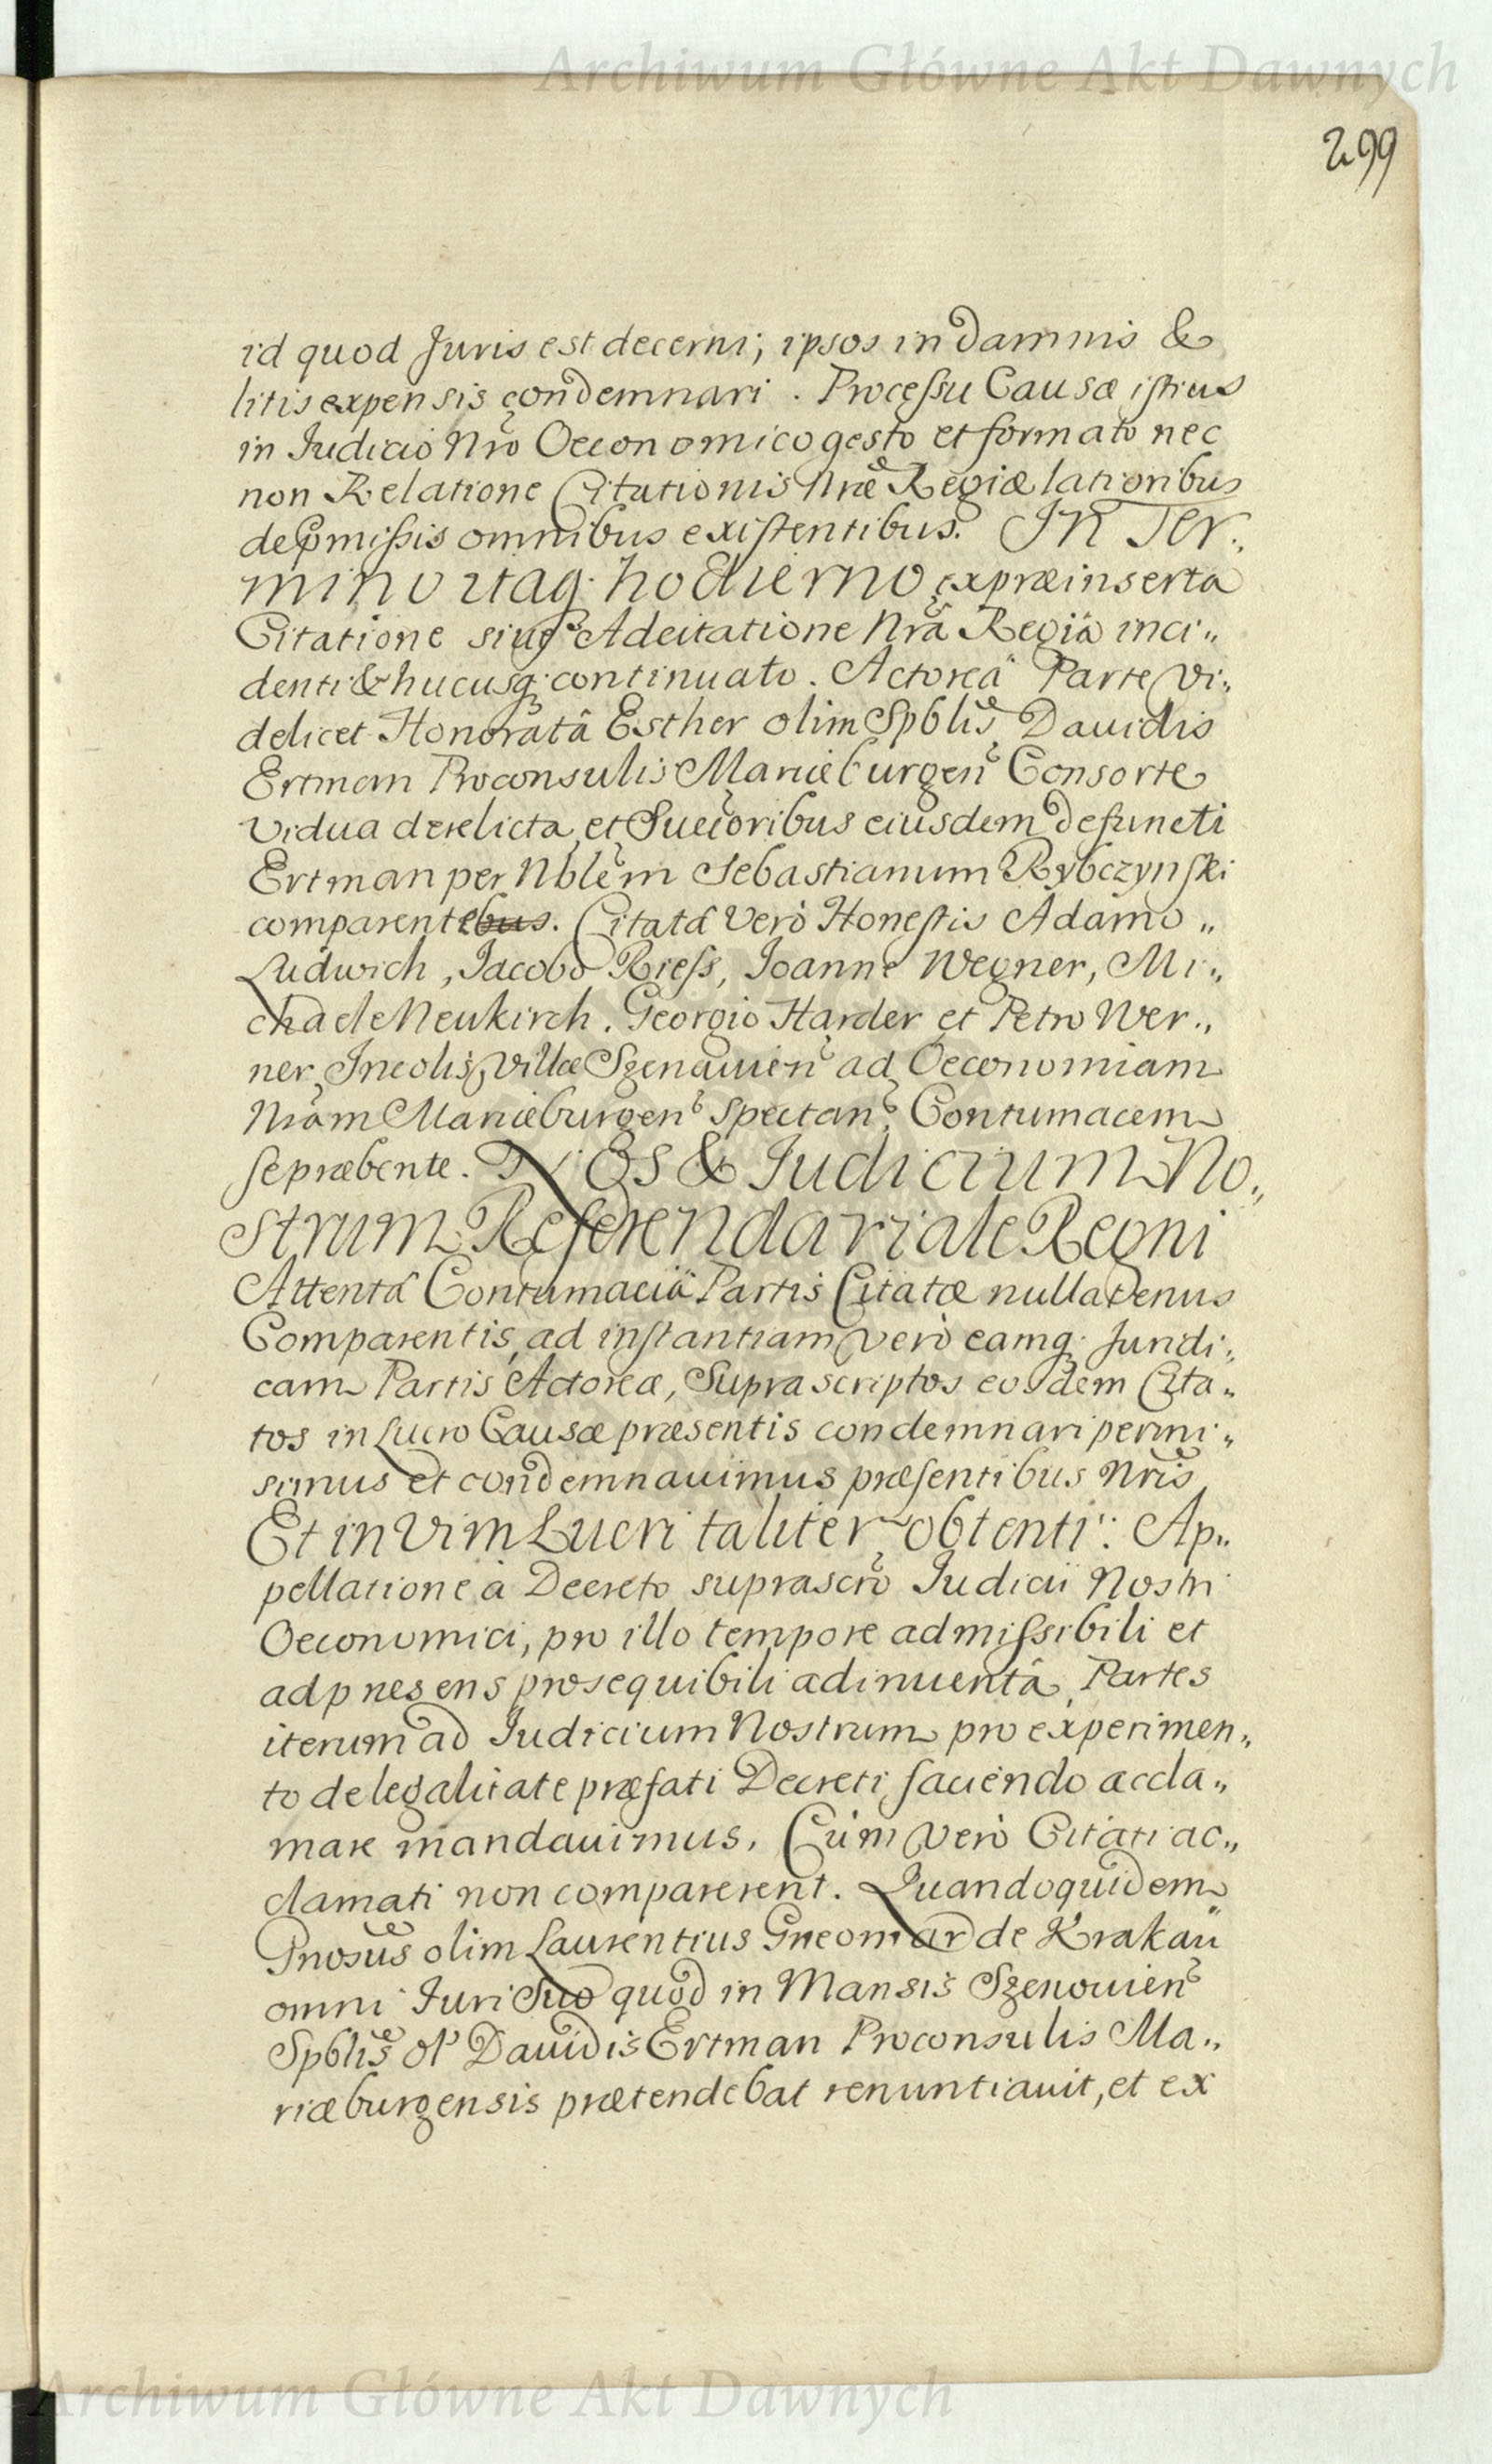 Archiwum Główne Akt Dawnych
299
id quod Juris est decerni; ipsos in Damnis &
litis expensis condemnari. Processu Causæ istius
in Judicio Nrõ Oeconomico gesto et formato nec
non Relatione Citationis Nræ Regiæ lationibus
de pmissis omnibus existentibus. IN Ter„
mino itaq. hodierno ex præinserta
Citatione siue Adcitatione Nrã Regiâ inci„
denti & hucusq. continuato. Actoreâ Parte Vi„
delicet Honoratâ Esther olim Spblis Dauidis
Ertman Proconsulis Mariæburgen Consorte
Vidua derelicta et Succoribus eiusdem defuncti
Ertman per Nblem Sebastianum Rybczynski
comparentebus. Citatâ Verò Honestis Adamo„
Ludwich, Jacobo Riess, Joanne Wegner, Mi„
chaele Neukirch. Georgio Harder et Petro Wer„
ner, Incolis Villæ Szenauien ad Oeconomiam
Nram Mariæburgen Spectan Contumacem
se præbente. NOS & Judicium No„
strum Referendariale Regni
Attentâ Contumaciâ Partis Citatæ nullatenus
Comparentis, ad instantiam Verò eamq. Juridi„
cam Partis Actoreæ, Suprascriptos eosdem Cita„
tos in Lucro Causæ præsentis condemnari permi„
simus et condemnauimus præsentibus Nris
Et in Vim Lucri taliter obtenti: Ap„
pellatione à Decreto suprascro Judicii Nostri
Oeconomici, pro illo tempore admissibili et
ad pnes ens prosequibili adinuentâ, Partes
iterum ad Judicium Nostrum pro experimen„
to de legalitate præfati Decreti faciendo accla„
mare mandauimus. Cúm Verò Citati ac„
clamati non comparerent. Quandoquidem
Gnosus olim Laurentius Gneomar de Krakau
omni Juri Suo quod in Mansis Szenouien
Spblis ol Dauidis Ertman Proconsulis Ma„
riæburgensis prætendebat renuntiauit, et ex
Archiwum Główne Akt Dawnych